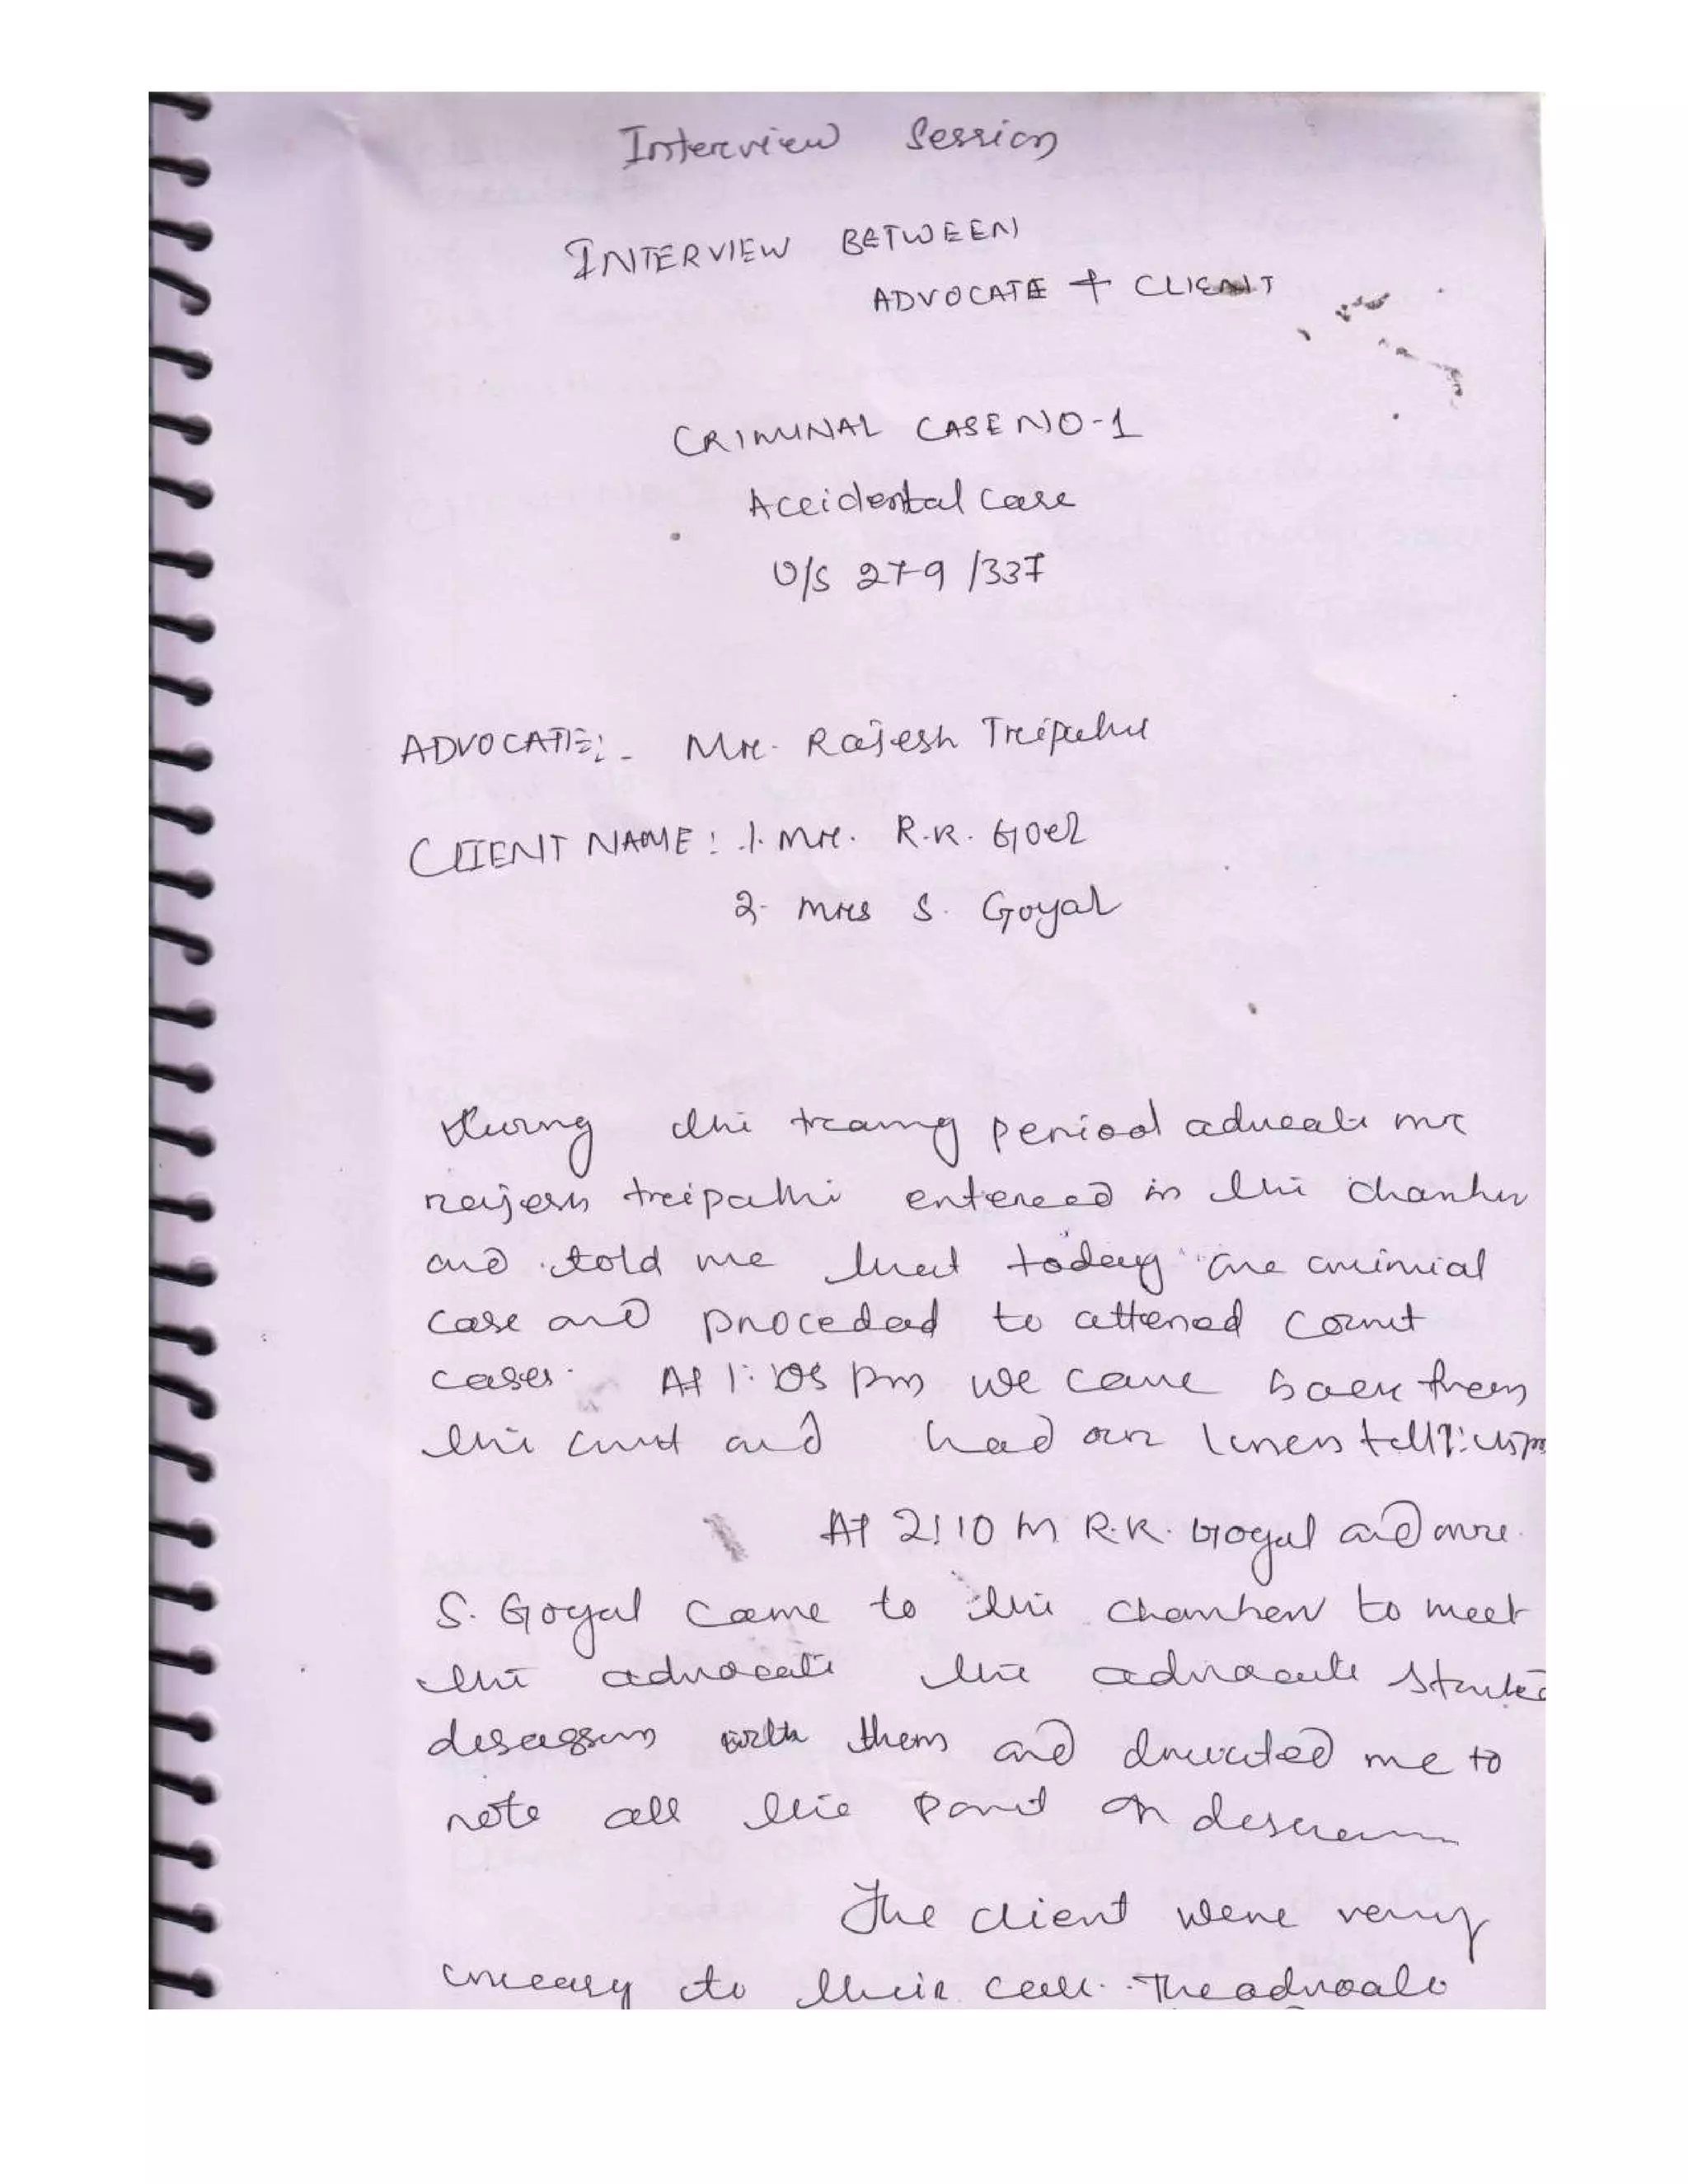 Interview Session
INTERVIEW BETWEEN
ADVOCATE + CLIENT
CRIMINAL CASE NO-1
Accidental case
U/S 279/337
ADVOCATE:- Mr. Rajesh Tripathi
CLIENT NAME: 1. Mr. R.K. Goel
2. Mrs S. Goyal
During the period advocate mr
rajesh tripathi entered in the chamber
and told me that today one
case and proceded to attened court
cases. At 1:05 pm we came back from
the court and had our
At 2:10 R.K. Goyal and
S. Goyal came to the chamber to meet
the advocate the advocate started
with them and directed me to
note all the
The client were very
uneasy to their The advocate